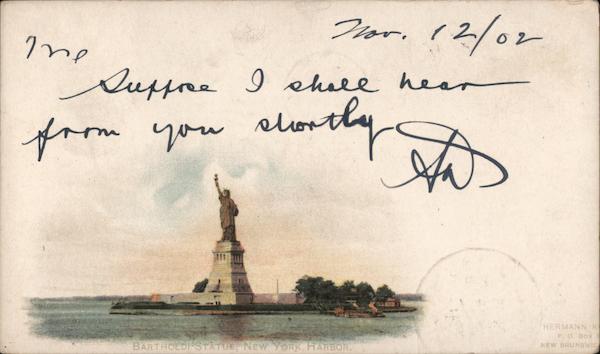 Nov. 12/02
Suppose I shall hear
from you shortly
BARTHOLDI STATUE, NEW YORK HARBOR.
HERMANN
P. O. BOX
NEW BRUNSWIC